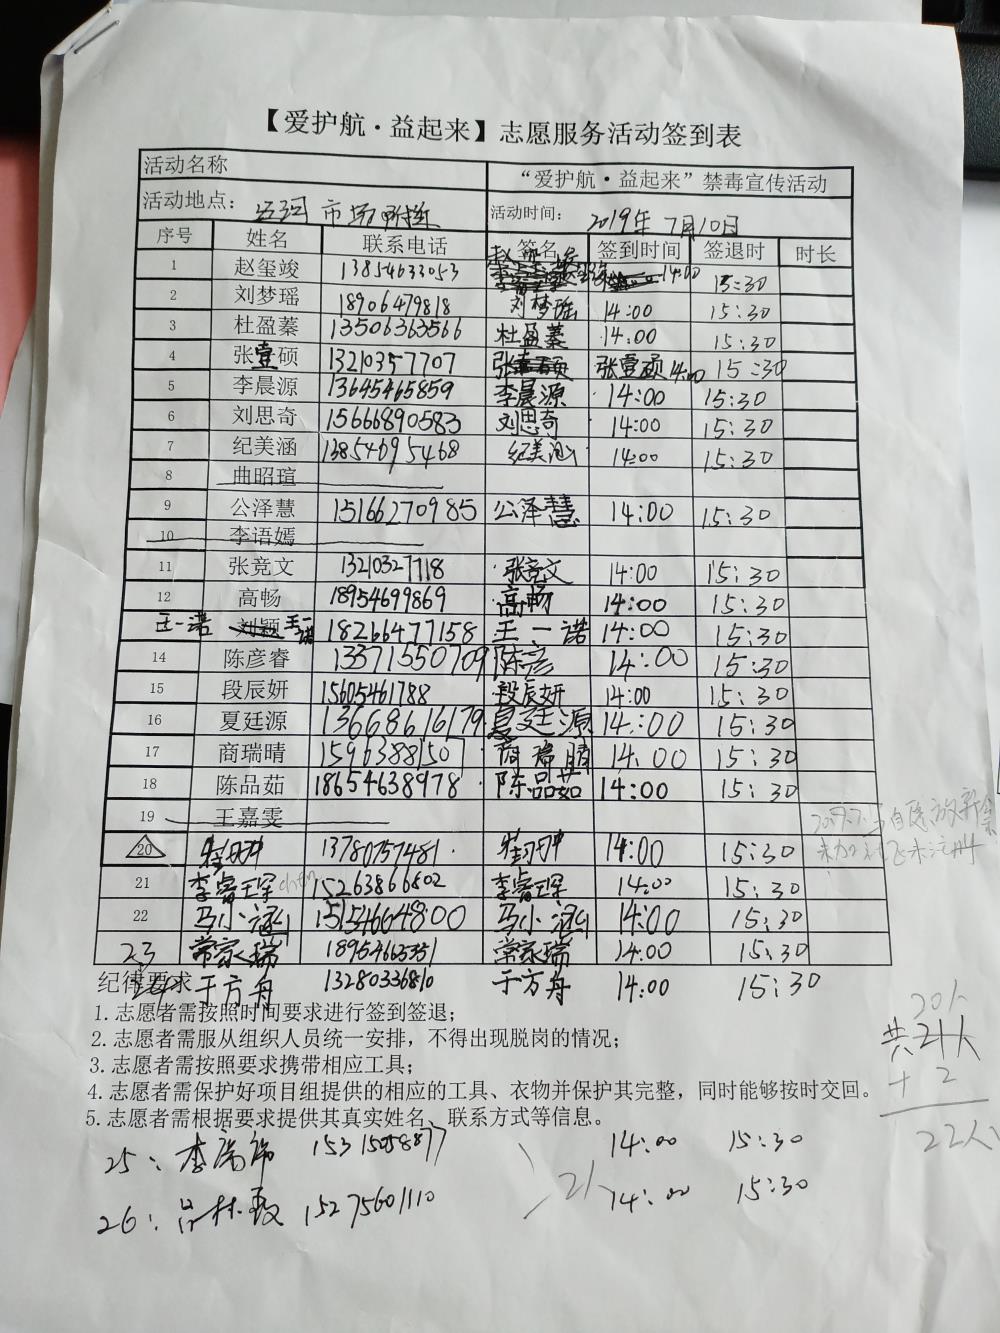 【爱护航·益起来】志愿服务活动签到表
活动名称 “爱护航·益起来”禁毒宣传活动
活动地点： 市场附近 活动时间： 2019年7月10日
序号 姓名 联系电话 签名 签到时间 签退时 时长
1 赵玺竣 13854633053 14:00 15:30
2 刘梦瑶 18906479818 刘梦瑶 14:00 15:30
3 杜盈蓁 13506363566 杜盈蓁 14:00 15:30
4 张壹硕 13210357707 张壹硕 14:00 15:30
5 李晨源 13645465859 李晨源 14:00 15:30
6 刘思奇 15666890583 刘思奇 14:00 15:30
7 纪美涵 13854695468 纪美涵 14:00 15:30
8 曲昭瑄
9 公泽慧 15166270985 公泽慧 14:00 15:30
10 李语嫣
11 张竞文 13210327718 张竞文 14:00 15:30
12 高畅 18954699869 高畅 14:00 15:30
王一诺 刘颖 王一诺 18266477158 王一诺 14:00 15:30
14 陈彦睿 13371550709 陈彦 14:00 15:30
15 段辰妍 15605461788 段辰妍 14:00 15:30
16 夏廷源 13668616179 夏廷源 14:00 15:30
17 商瑞晴 15963881507 商瑞晴 14:00 15:30
18 陈品茹 18654638978 陈品茹 14:00 15:30
19 王嘉雯
20 13780757481 14:00 15:30
21 李睿琛 chen 15263866802 李睿琛 14:00 15:30
22 马小涵 15154664800 马小涵 14:00 15:30
23 常家瑞 18954663351 常家瑞 14:00 15:30
纪律要求
24 于方舟 13280336810 于方舟 14:00 15:30
1. 志愿者需按照时间要求进行签到签退；
2. 志愿者需服从组织人员统一安排，不得出现脱岗的情况；
3. 志愿者需按照要求携带相应工具；
4. 志愿者需保护好项目组提供的相应的工具、衣物并保护其完整，同时能够按时交回。
5. 志愿者需根据要求提供其真实姓名、联系方式等信息。
20人
共21人
+ 2
22人
25： 李 15315058877 14:00 15:30
21人
26： 吕林 15275601110 14:00 15:30